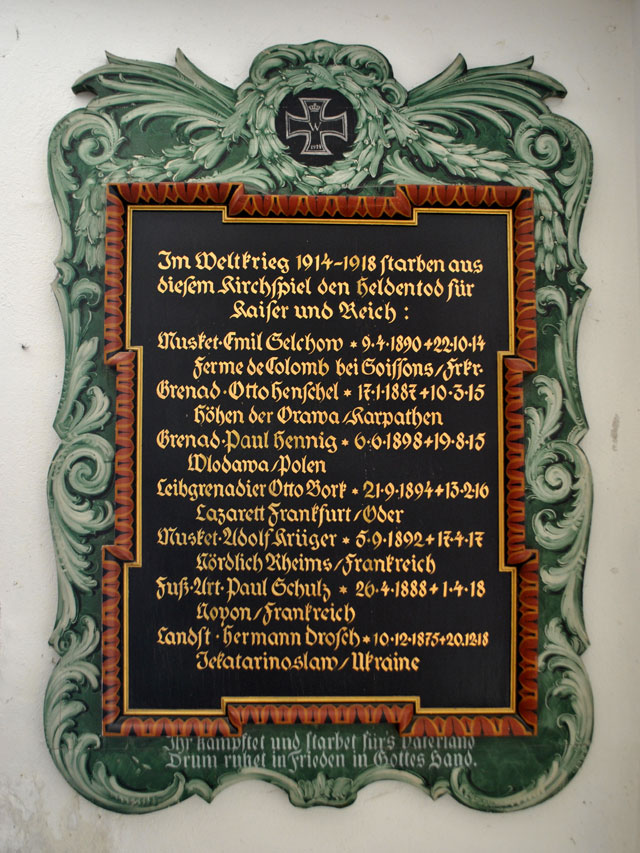 W
1914
Im Weltkrieg 1914-1918 starben aus
diesem Kirchspiel den Heldentod für
Kaiser und Reich :
Musket · Emil Selchow * 9·4·1890 + 22·10·14
Ferme de Colomb bei Soissons/Frkr·
Grenad · Otto Henschel * 17·1·1887 + 10·3·15
Höhen der Orawa/Karpathen
Grenad · Paul Hennig * 6·6·1898 + 19·8·15
Wlodawa/Polen
Leibgrenadier Otto Bork * 21·9·1894 + 13·2·16
Lazarett Frankfurt/Oder
Musket · Adolf Krüger * 5·9·1892 + 17·4·17
Nördlich Rheims/Frankreich
Fuß·Art·Paul Schulz * 26·4·1888 + 1·4·18
Noyon/Frankreich
Landst · Hermann Drosch * 10·12·1875 + 20.12.18
Jekatarinoslaw/Ukraine
Ihr kämpftet und starbet für's Vaterland
Drum ruhet in Frieden in Gottes Hand.